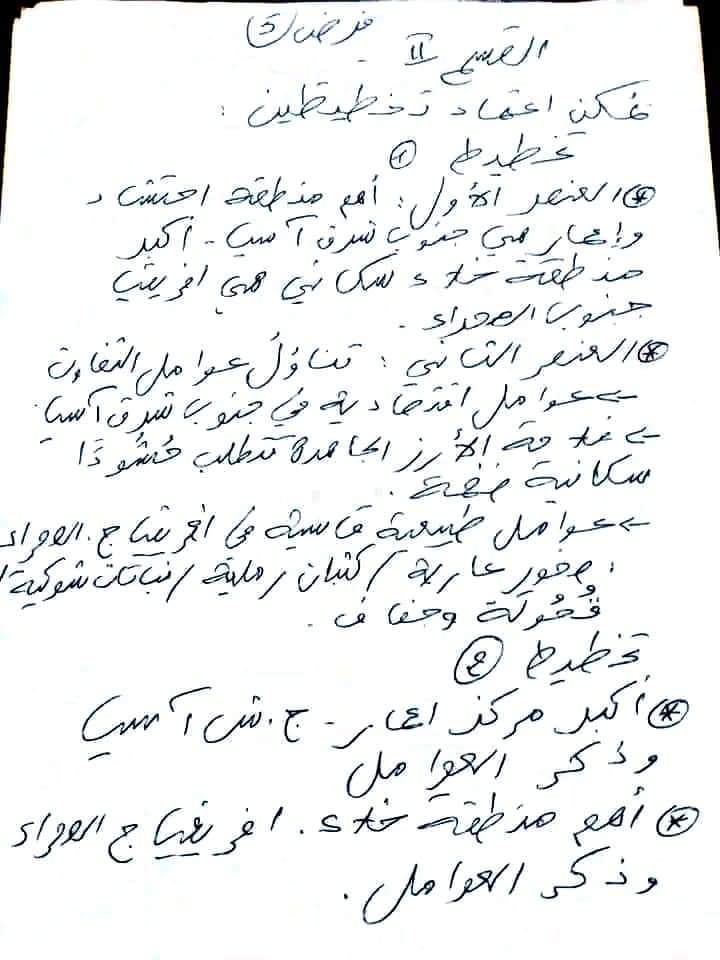 فرض ك (5)
القسم II
يمكن اعتماد تخطيطين :
تخطيط (1)
* العنصر الأول : أهم منطقة احتشاد
وإعمار هي جنوب شرق آسيا - أكبر
منطقة خلاء سكاني هي افريقيا
جنوب الصحراء .
* العنصر الثاني : تناول عوامل التفاوت
← عوامل اقتصادية في جنوب شرق آسيا
← فلاحة الأرز الجاهدة تتطلب حُشُودًا
سكانية ضخمة .
← عوامل طبيعية قاسية في افريقيا ج. الصحراء
: صخور عارية / كثبان رملية / نباتات شوكية /
قُحُولَة وجفاف .
تخطيط (2)
* أكبر مركز اعمار - ج. ش آسيا
وذكر العوامل
* أهم منطقة خلاء . افريقيا ج الصحراء
وذكر العوامل .